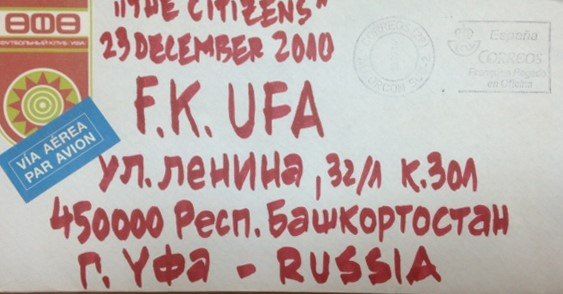 "THE CITIZENS"
23 DECEMBER 2010
F.K. UFA
ул. ленина, 32/1 к.301
450000 Респ. Башкортостан
г. Уфа - RUSSIA
ФУТБОЛЬНЫЙ КЛУБ УФА
VÍA AÉREA
PAR AVION
CORREOS
España
CORREOS
Franqueo Pagado
en Oficina